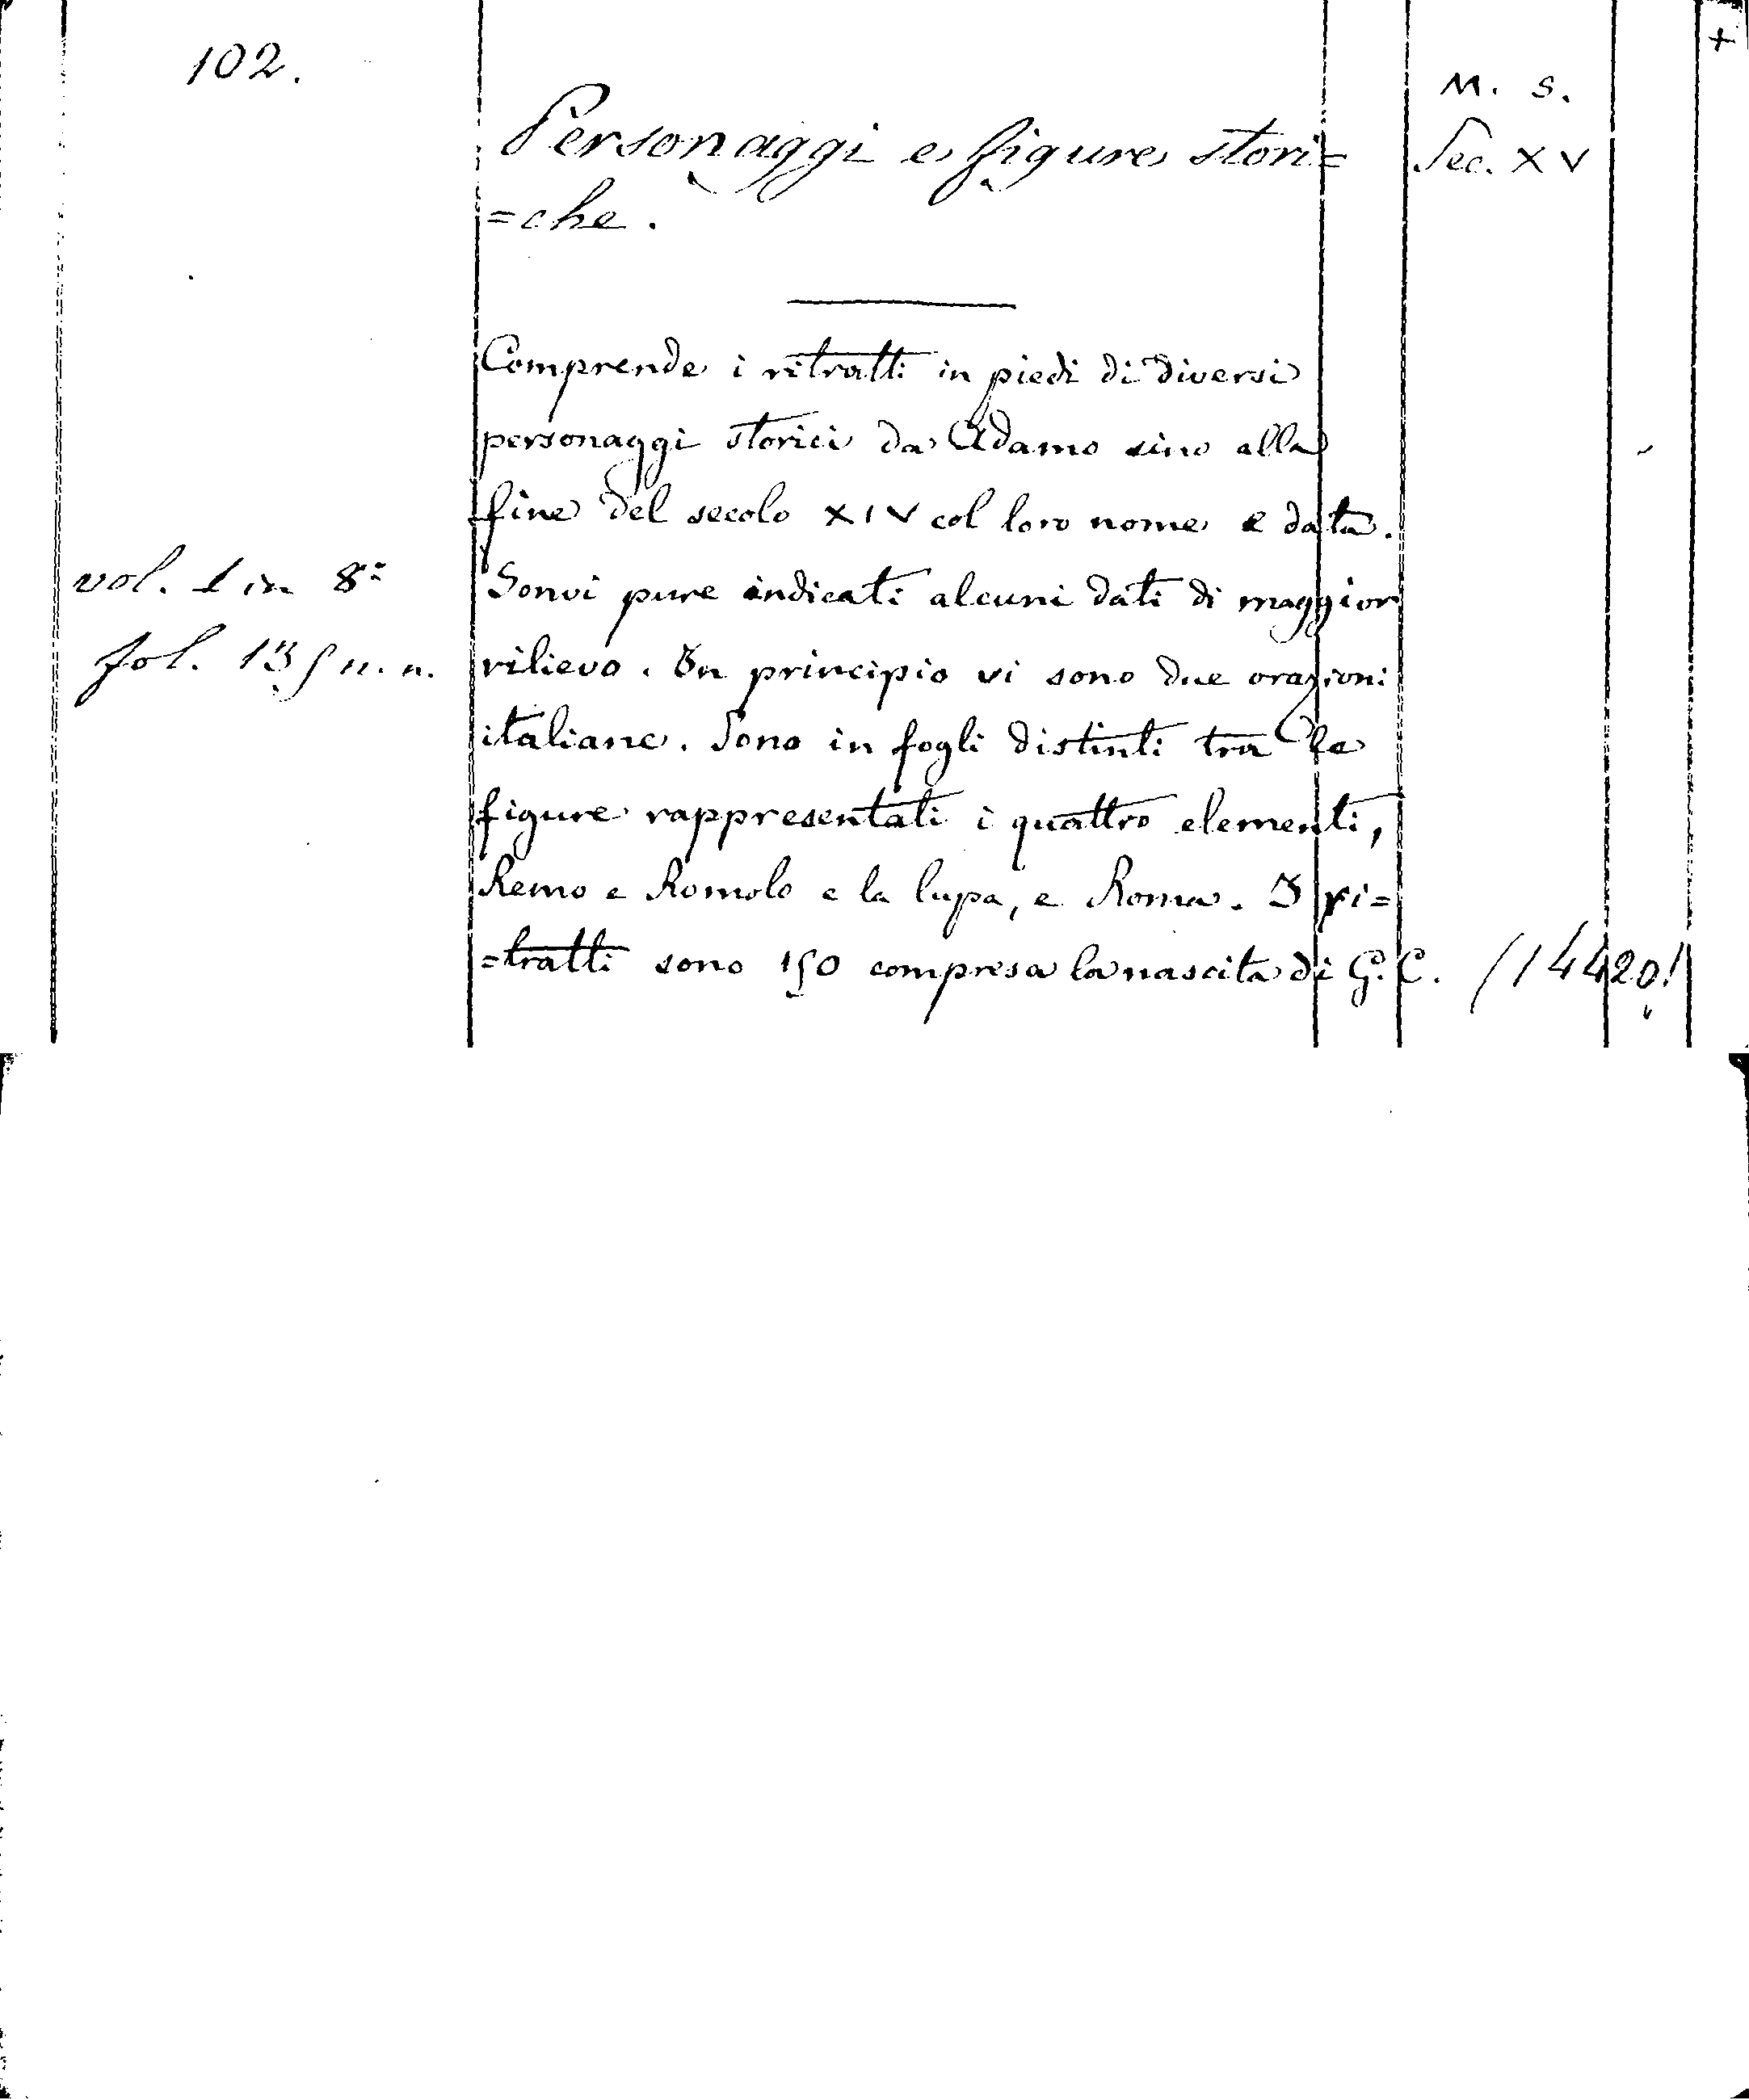 102.
+
M. S.
Personaggi e figure stori=
Sec. XV
=che.
Comprende i ritratti in piedi di diversi
personaggi storici da Adamo sino alla
fine del secolo XIV col loro nome e data.
vol. 1 in 8º
Sonvi pure indicati alcuni dati di maggior
fol. 135 n. n.
rilievo. In principio vi sono due orazioni
italiane. Sono in fogli distinti tra le
figure rappresentati i quattro elementi,
Remo e Romolo e la lupa, e Roma. I ri=
=tratti sono 150 compresa la nascita di G. C. (14420!)